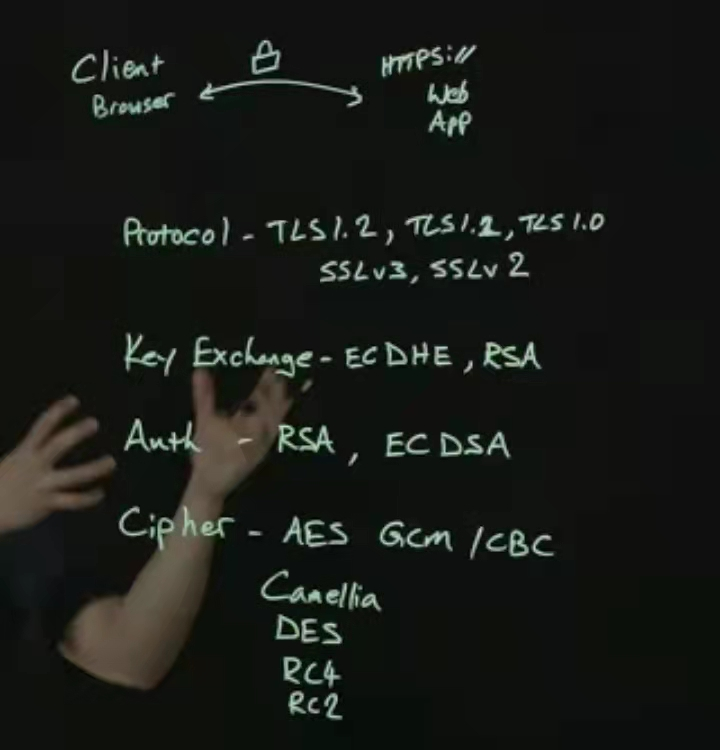 Client
Browser
HTTPS://
Web
App
Protocol - TLS 1.2, TLS 1.2, TLS 1.0
SSLv3, SSLv2
Key Exchange - ECDHE, RSA
Auth - RSA, ECDSA
Cipher - AES GCM / CBC
Camellia
DES
RC4
RC2